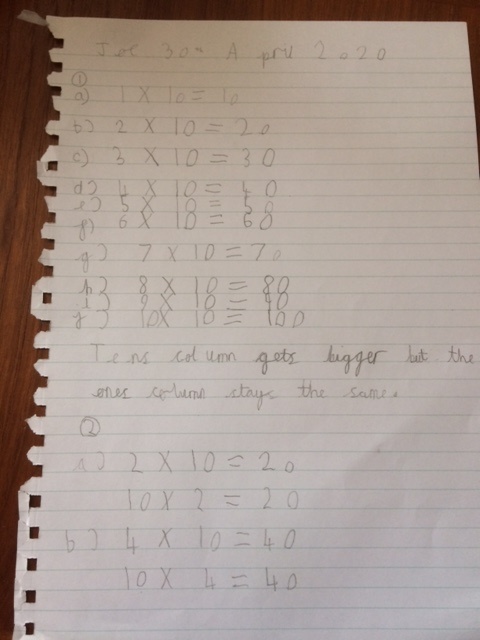 Joe 30th April 2020
①
a) 1 X 10 = 10
b) 2 X 10 = 20
c) 3 X 10 = 30
d) 4 X 10 = 40
e) 5 X 10 = 50
f) 6 X 10 = 60
g) 7 X 10 = 70
h) 8 X 10 = 80
i) 9 X 10 = 90
j) 10X 10 = 100
Tens column gets bigger but the
ones column stays the same.
②
a) 2 X 10 = 20
10 X 2 = 20
b) 4 X 10 = 40
10 X 4 = 40